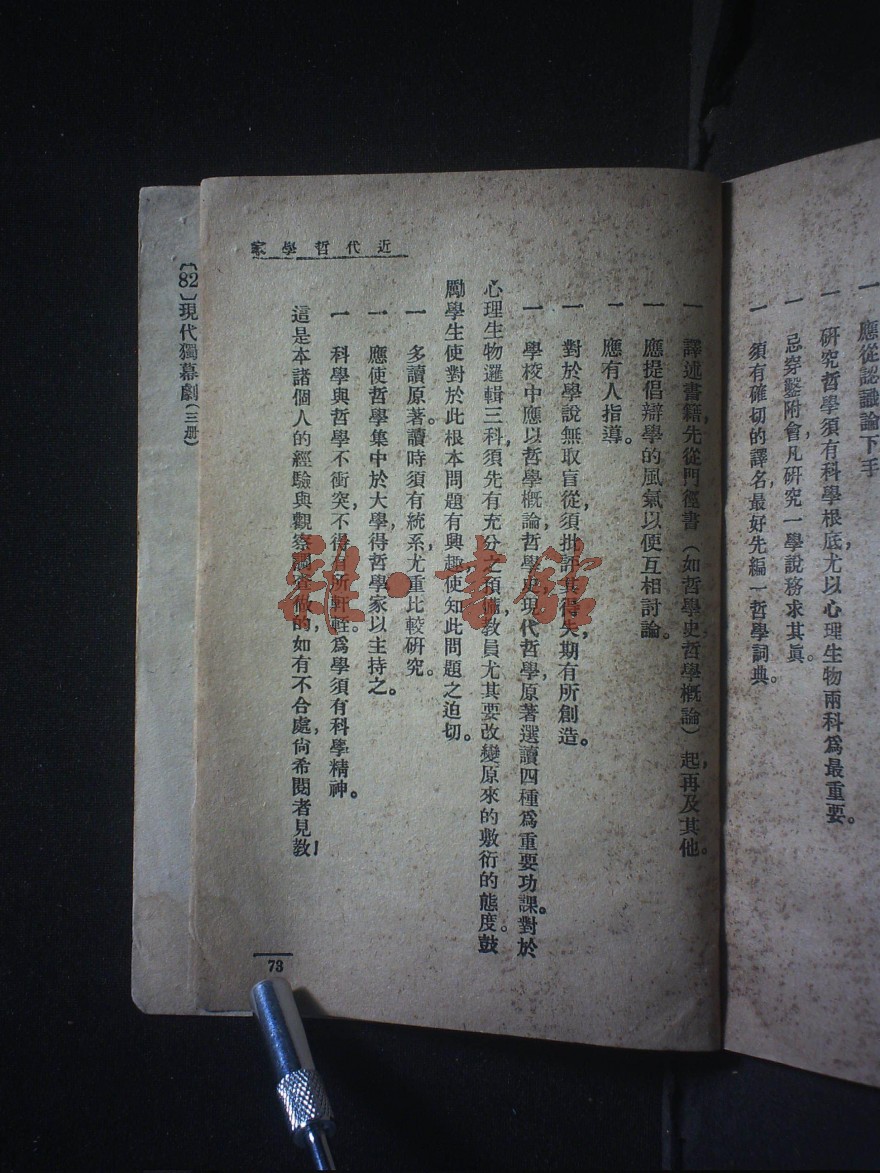 一　應從認識論下手
一　研究哲學須有科學根底，尤以心理生物兩科爲最重要。
一　忌穿鑿附會，凡研究一學說務求其眞。
一　須有確切的譯名，最好先編一哲學詞典。
近代哲學家
一　譯述書籍，先從門徑書（如哲學史，哲學概論）起，再及其他。
一　應提倡辯學的風氣以便互相討論。
一　應有人指導。
一　對於學說無取盲從，須批評其得失，期有所創造。
一　學校中應以哲學概論，哲學史，現代哲學，原著選讀四種爲重要功課。對於
心理生物邏輯三科，須先有充分之預備，教員尤其要改變原來的敷衍的態度。鼓
勵學生使對於此根本問題有興趣，使知此問題之迫切。
一　多讀原著。讀時須有統系，尤重比較研究。
一　應使哲學集中於大學，得哲學家以主持之。
一　科學與哲學不衝突，不得有所軒輊。爲學須有科學精神。
這是本諸個人的經驗與觀察調查做的，如有不合處，尙希閱者見教！
73
〔82〕現代獨幕劇（三册）
雜·書館